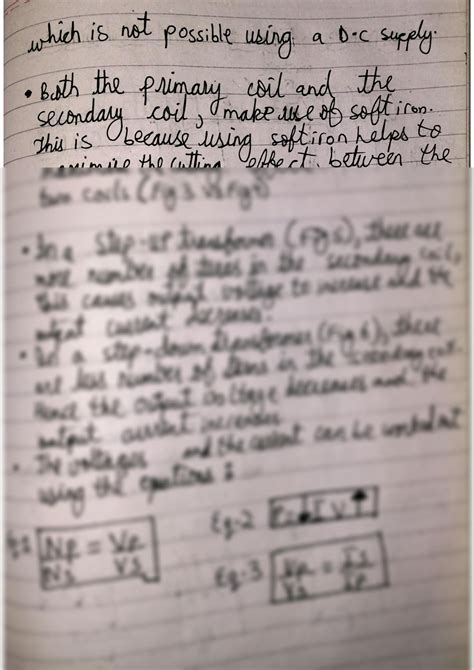 which is not possible using a D.C supply.
• Both the primary coil and the
secondary coil, make use of soft iron.
This is because using soft iron helps to
maximise the cutting effect between the
two coils (Fig 3 vs Fig 4)
• In a step-up transformer (Fig 5), there are
more number of turns in the secondary coil,
this causes output voltage to increase and the
output current decreases.
• In a step-down transformer (Fig 6), there
are less number of turns in the secondary coil.
Hence the output voltage decreases and the
output current increases.
• The voltages and the current can be worked out
using the equations :
Eq-2 P = I V
Np = Vp
Ns Vs
Eq-3 Vp = Is
Vs Ip